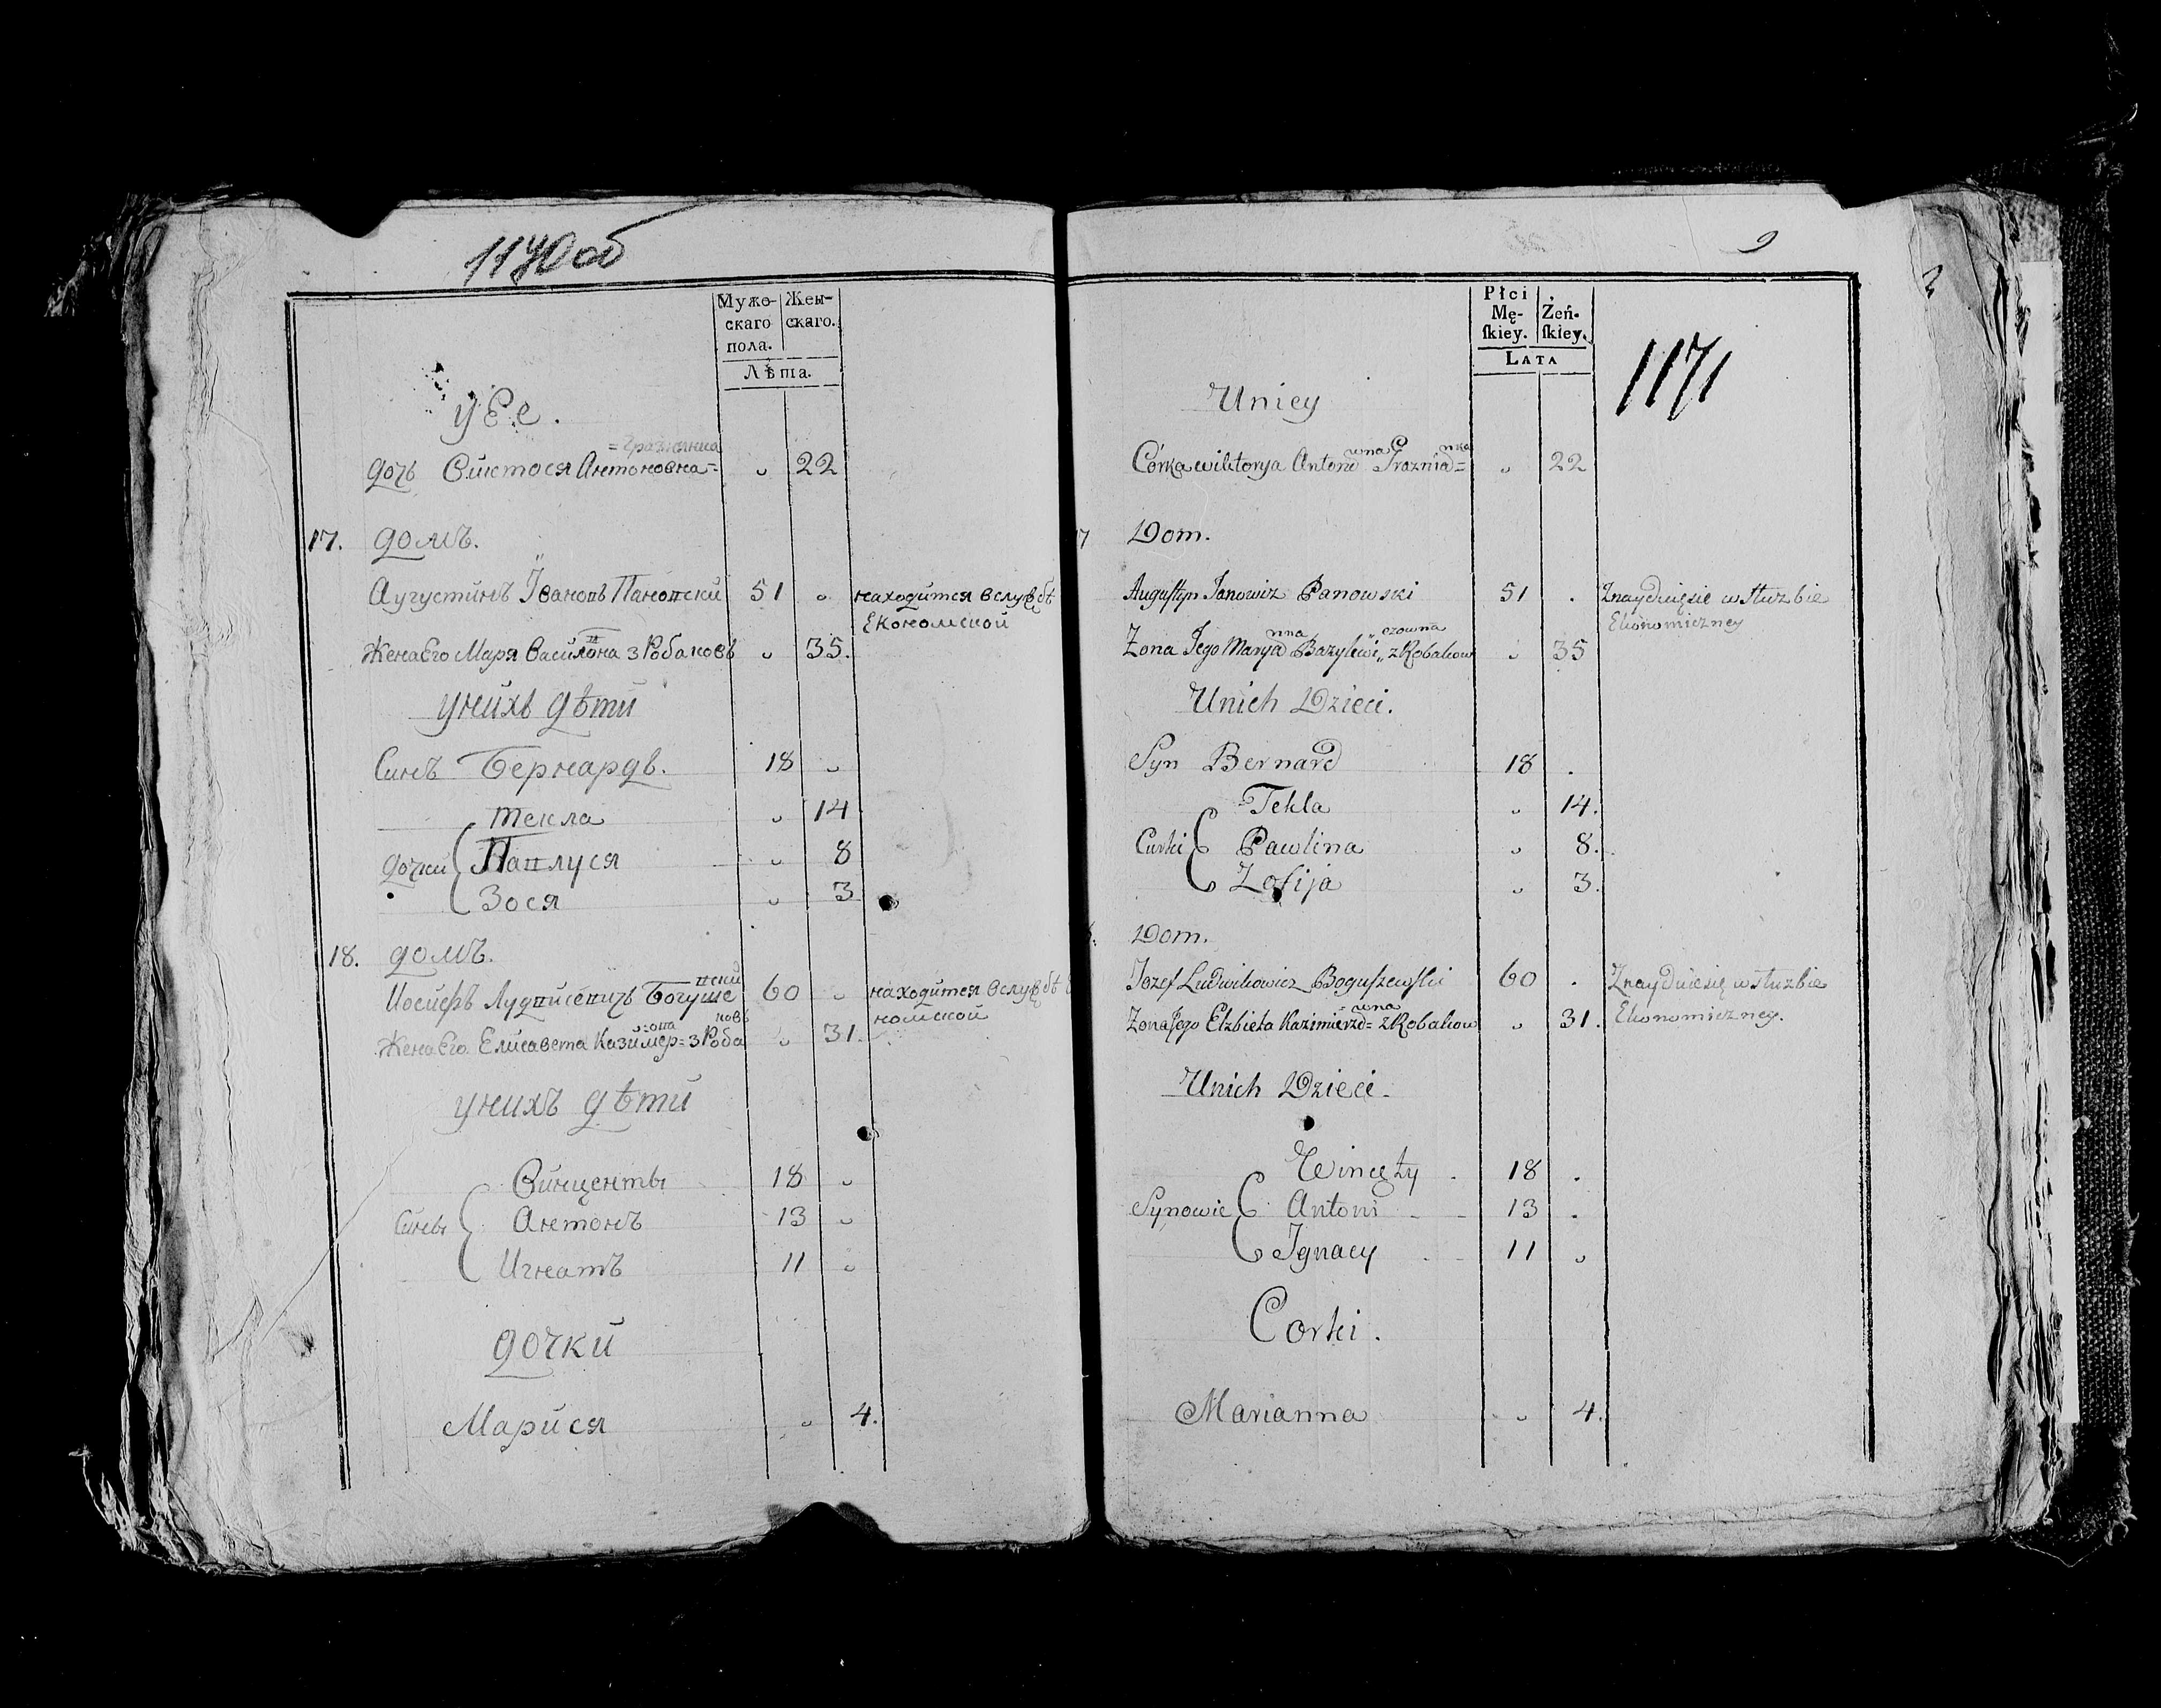 1170 об
Мужескаго пола.
Женскаго.
Лѣта.
у Ее.
дочь Виктося Антоновна = Гразнянка
" 22
17. домъ.
Аугустинъ Івановъ Пановски 51 " находится вслужбѣ
Економской
Жена Его Маря Василювна з Робаковъ " 35.
у нихъ дѣти
Синъ Бернардъ. 18 "
Текла " 14
дочки Павлуся " 8
Зося " 3
18. домъ.
Иосифъ Лудвиковичъ Богушевски 60 " находится вслужбѣ Е
номской
Жена Его Елисавета Казимер=овна з Робаковъ " 31.
у нихъ дѣти
Винценты 18 "
Сины Антонъ 13 "
Игнатъ 11 "
дочки
Марися " 4.
9
1171
Płci Męſkiey.
Żeńſkiey.
LATA
U niey
Córka wiktorya Antoniowna Grazniadnka " 22
17 Dom.
Auguſtyn Janowicz Panowski 51 . Znayduięsię w służbie
Ekonomiczney
Zona Jego Maryanna Bazylewiczowna z Robakow " 35
U nich Dzieci.
Syn Bernard 18 .
Tekla " 14.
Curki Pawlina " 8.
Zofija " 3.
Dom.
Jozef Ludwikowicz Boguſzewſki 60 . Znayduiesię w służbie
Ekonomiczney.
Zona Jego Elzbieta Kazimierzowna z Robakow " 31.
U nich Dzieci.
Wincęty 18 .
Synowie Antoni 13 .
Jgnacy 11 "
Corki.
Marianna " 4.